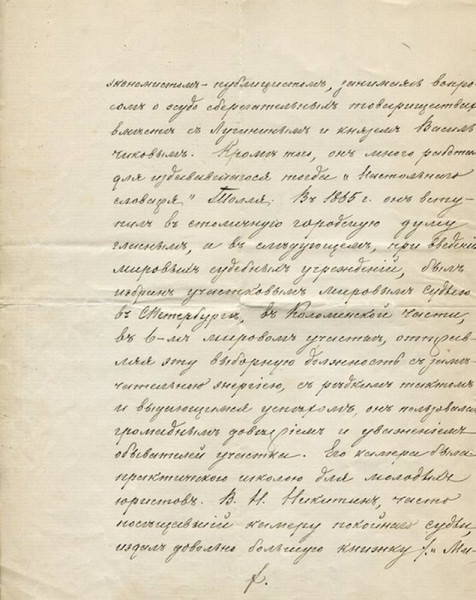 экономистомъ-публицистомъ, занимаясь вопро-
сомъ о ссудо сберегательныхъ товариществахъ
вмѣстѣ съ Лугининымъ и княземъ Василь-
чиковымъ. Кромѣ того, онъ много работалъ
для издававшагося тогда „Настольнаго
словаря" Толля. Въ 1865 г. онъ всту-
пилъ въ столичную городскую думу
гласнымъ, а въ слѣдующемъ, при введеніи
мировыхъ судебныхъ учрежденій, былъ
избранъ участковымъ мировымъ судьею
въ С.Петербургѣ, въ Коломенской части,
въ 6-мъ мировомъ участкѣ, отправ-
ляя эту выборную должность съ замѣ-
чательною энергіею, съ рѣдкимъ тактомъ
и выдающимся успѣхомъ, онъ пользовался
громаднымъ довѣріемъ и уваженіемъ
обывателей участка. Его камера была
практическою школою для молодыхъ
юристовъ. В. Н. Никитинъ, часто
посѣщавшій камеру покойнаго судьи,
издалъ довольно большую книжку „Ми-